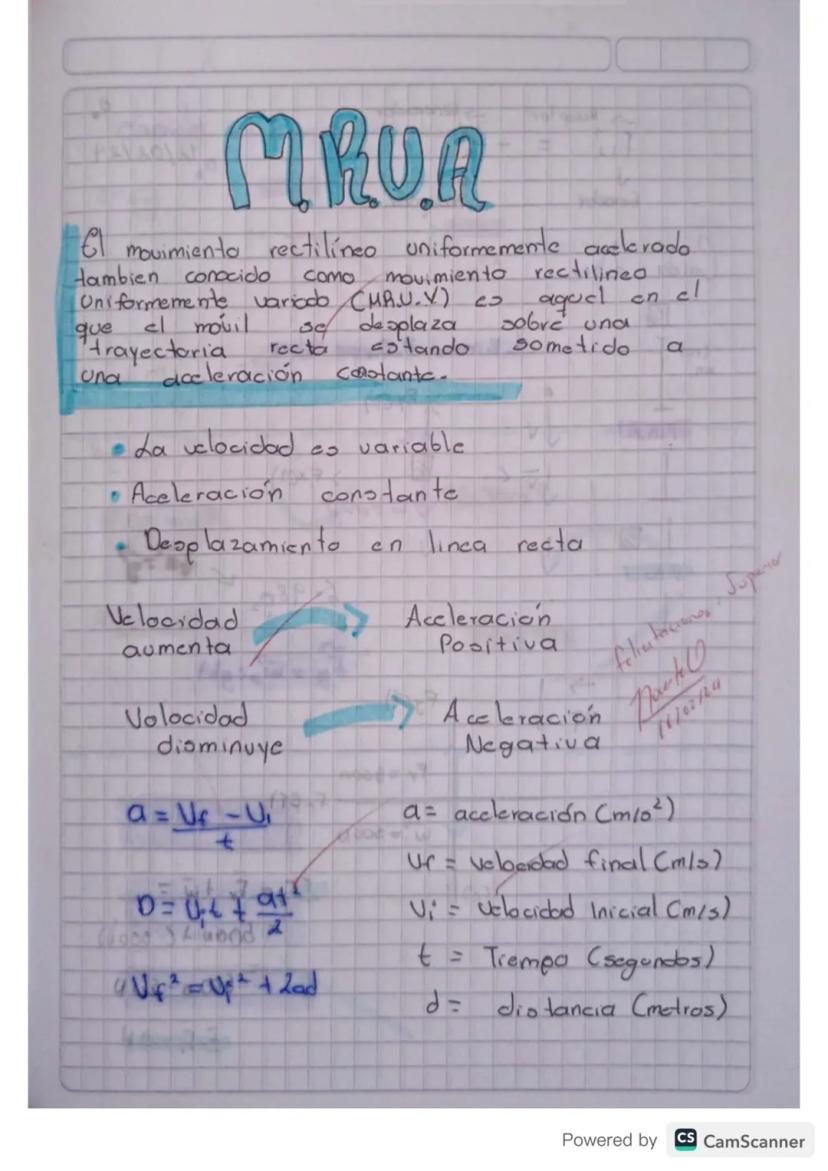 M.R.U.A
El movimiento rectilíneo uniformemente acelerado
tambien conocido como movimiento rectilineo
Uniformemente variado (M.R.U.V) es aquel en el
que el móvil se desplaza sobre una
trayectoria recta estando sometido a
una aceleración constante.
• La velocidad es variable
• Aceleración constante
• Desplazamiento en linea recta
Velocidad aumenta → Aceleración Positiva
Velocidad disminuye → Aceleración Negativa
Felicitaciones, Superior
16/02/24
a = Vf - Vi / t
a = aceleración (m/s²)
Vf = velocidad final (m/s)
D = Vit + at² / 2
Vi = velocidad Inicial (m/s)
t = Tiempo (segundos)
Vf² = Vi² + 2ad
d = distancia (metros)
Powered by CS CamScanner